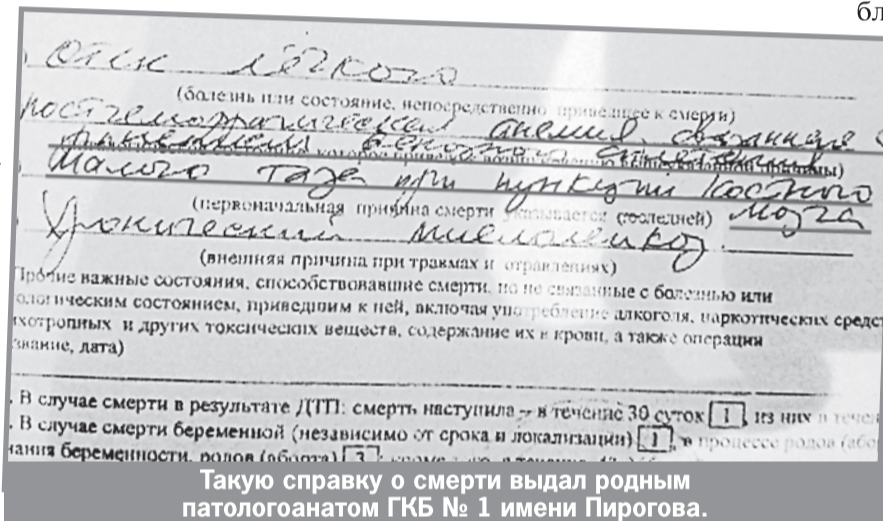 бл
отек лёгкого
(болезнь или состояние, непосредственно приведшее к смерти)
постгеморрагическая анемия связанная с
ранением венозного сплетения
малого таза при пункции костного
(первоначальная причина смерти указывается последней) мозга
Хронический миелолейкоз.
(внешняя причина при травмах и отравлениях)
Прочие важные состояния, способствовавшие смерти, но не связанные с болезнью или
ологическим состоянием, приведшим к ней, включая употребление алкоголя, наркотических средст
ихотропных и других токсических веществ, содержание их в крови, а также операции
звание, дата)
. В случае смерти в результате ДТП: смерть наступила – в течение 30 суток 1, из них в течен
. В случае смерти беременной (независимо от срока и локализации) 1, в процессе родов (або
чания беременности, родов (аборта) 3
Такую справку о смерти выдал родным
патологоанатом ГКБ № 1 имени Пирогова.